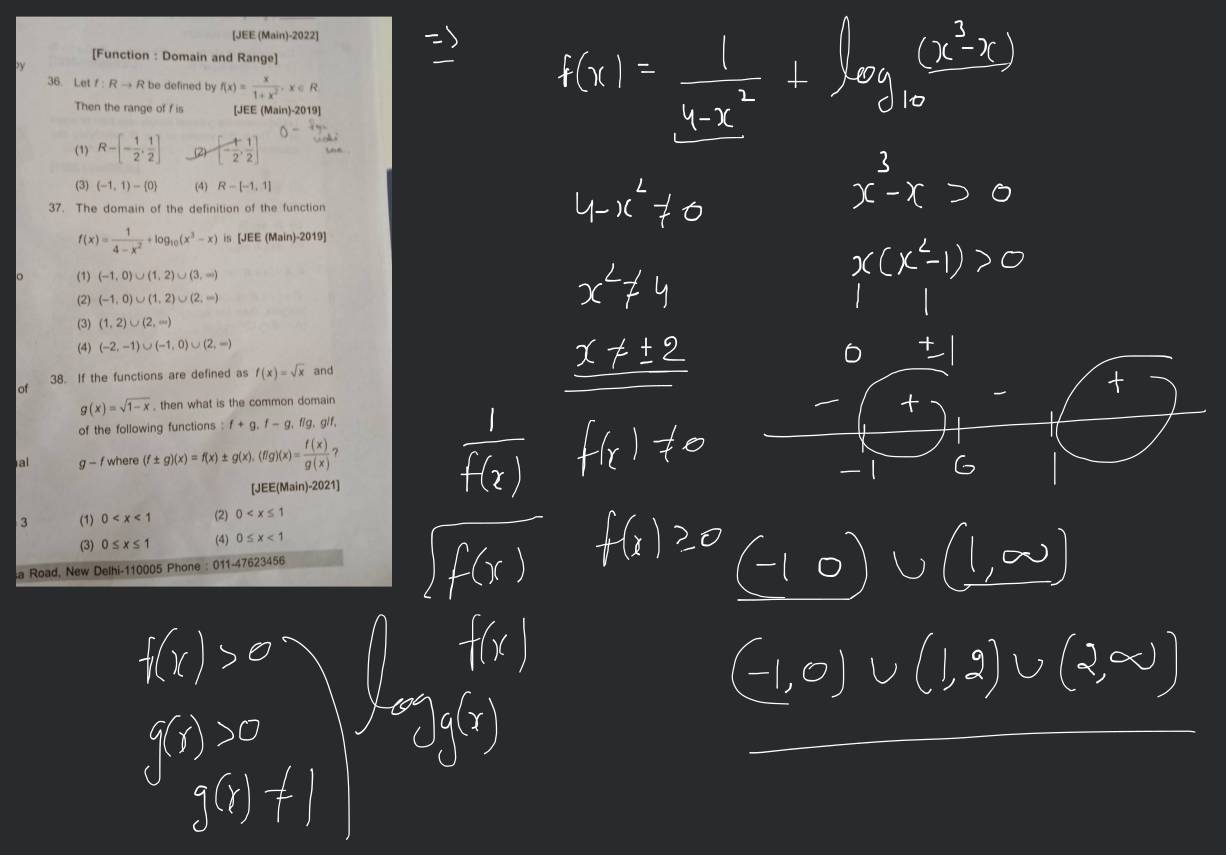 [JEE (Main)-2022]
[Function : Domain and Range]
36. Let f : R → R be defined by f(x) = x/(1 + x²), x ∈ R.
Then the range of f is [JEE (Main)-2019]
(1) R – [–1/2, 1/2] (2) [–1/2, 1/2]
(3) (–1, 1) – {0} (4) R – [–1, 1]
37. The domain of the definition of the function
f(x) = 1/(4 – x²) + log₁₀(x³ – x) is [JEE (Main)-2019]
(1) (–1, 0) ∪ (1, 2) ∪ (3, ∞)
(2) (–1, 0) ∪ (1, 2) ∪ (2, ∞)
(3) (1, 2) ∪ (2, ∞)
(4) (–2, –1) ∪ (–1, 0) ∪ (2, ∞)
38. If the functions are defined as f(x) = √x and
g(x) = √(1 – x), then what is the common domain
of the following functions : f + g, f – g, f/g, g/f,
g – f where (f ± g)(x) = f(x) ± g(x), (f/g)(x) = f(x)/g(x) ?
[JEE(Main)-2021]
(1) 0 < x < 1 (2) 0 < x ≤ 1
(3) 0 ≤ x ≤ 1 (4) 0 ≤ x < 1
a Road, New Delhi-110005 Phone : 011-47623456
of
3
⇒ f(x) = 1/(4-x²) + log₁₀(x³-x)
4-x² ≠ 0
x² ≠ 4
x ≠ ±2
x³-x > 0
x(x²-1) > 0
0 ±1
- + - +
-1 0 1
1/f(x) f(x) ≠ 0
√f(x) f(x) ≥ 0
(-1 0) ∪ (1, ∞)
(-1, 0) ∪ (1, 2) ∪ (2, ∞)
log_g(x) f(x)
f(x) > 0
g(x) > 0
g(x) ≠ 1